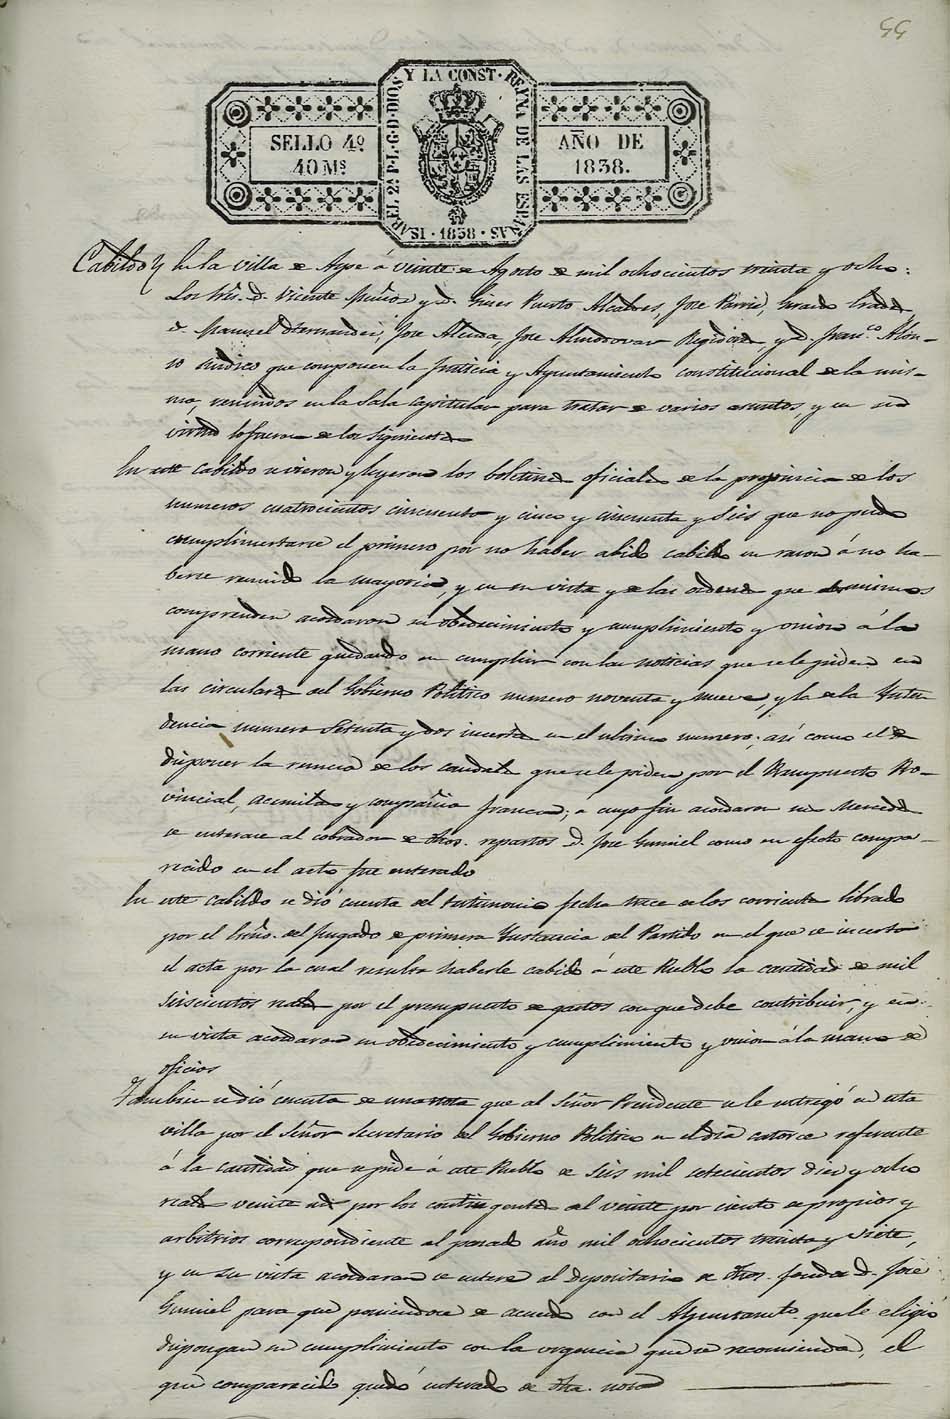 55
ISABEL 2ª P. L. G. D. DIOS Y LA CONST. REYNA DE LAS ESPAÑAS · 1838 ·
SELLO 4º
40 Ms
AÑO DE
1838.
Cabildo En la villa de Aspe á veinte de Agosto de mil ochocientos treinta y ocho:
Los Sres. D. Vicente Muñoz y D. Gines Puerto Alcaldes, Jose Pavia,
D. Manuel Hernandez, Jose Alcida, Jose Almodovar Regidores y D. Franco. Alon-
so sindico que componen la Justicia y Ayuntamiento constitucional de la mis-
ma, reunidos en la Sala Capitular para tratar de varios asuntos, y en su
virtud lo fueron de los siguientes
En este cabildo se vieron y leyeron los boletines oficiales de la provincia de los
numeros cuatrocientos cincuenta y cinco y cincuenta y seis que no pudo
cumplimentarse el primero por no haber abido cabildo en razon á no ha-
berse reunido la mayoria, y en su vista y de las ordenes que los mismos
comprenden acordaron su obedecimiento y cumplimiento y union á la
mano corriente quedando en cumplir con las noticias que se le piden en
las circulares del Gobierno Politico numero noventa y nueve, y la de la Inten
dencia numero Sesenta y dos incerta en el ultimo numero; asi como el de
disponer la remesa de los caudales que se le piden por el Presupuesto Pro-
vincial, acemilas y compañia franca; a cuyo fin acordaron sus Mercedes
se enterase al cobrador de dhos. repartos D. Jose Gumiel como en efecto compa-
recido en el acto fue enterado
En este cabildo se dió cuenta del testimonio fecha trece de los corrientes librado
por el Escno. del Juzgado de primera Instancia del Partido en el que se incerta
el acta por la cual resulta haberle cabido á este Pueblo la cantidad de mil
seiscientos reales por el presupuesto de gastos con que debe contribuir, y en
su vista acordaron su obedecimiento y cumplimiento y union á la mano de
oficios
Tambien se dió cuenta de una nota que al Señor Presidente se le entregó en esta
villa por el Señor Secretario del Gobierno Politico en el dia catorce referente
á la cantidad que se pide á este Pueblo de seis mil setecientos diez y ocho
reales veinte ms por los contingentes del veinte por ciento de propios y
arbitrios correspondiente al pasado año mil ochocientos treinta y siete,
y en su vista acordaron se entere al depositario de dhos. fondos D. Jose
Gumiel para que poniendose de acuerdo con el Ayuntamto. que le eligió
dispongan su cumplimiento con la urgencia que se recomienda, el
que comparecido quedó enterado de dha. nota